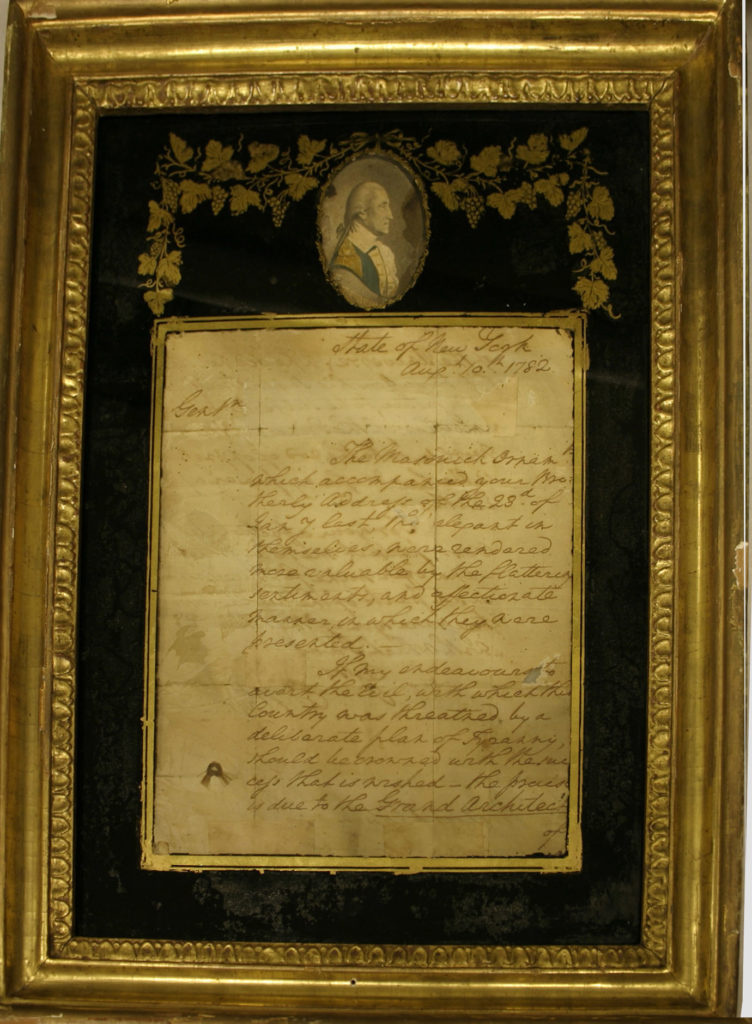 State of New York
Aug.t 10.th 1782
Gent.n
The Masonick Ornam.ts
which accompanied your Bro-
therly Address of the 23.d of
Jan.y last, tho' elegant in
themselves, were rendered
more valuable by the flattering
sentiments, and affectionate
manner, in which they were
presented. —
If my endeavours to
avert the Evil, with which the
Country was threatned by a
deliberate plan of Tyranny,
should be crowned with the suc-
cess that is wished — the praise
is due to the Grand Architect
of